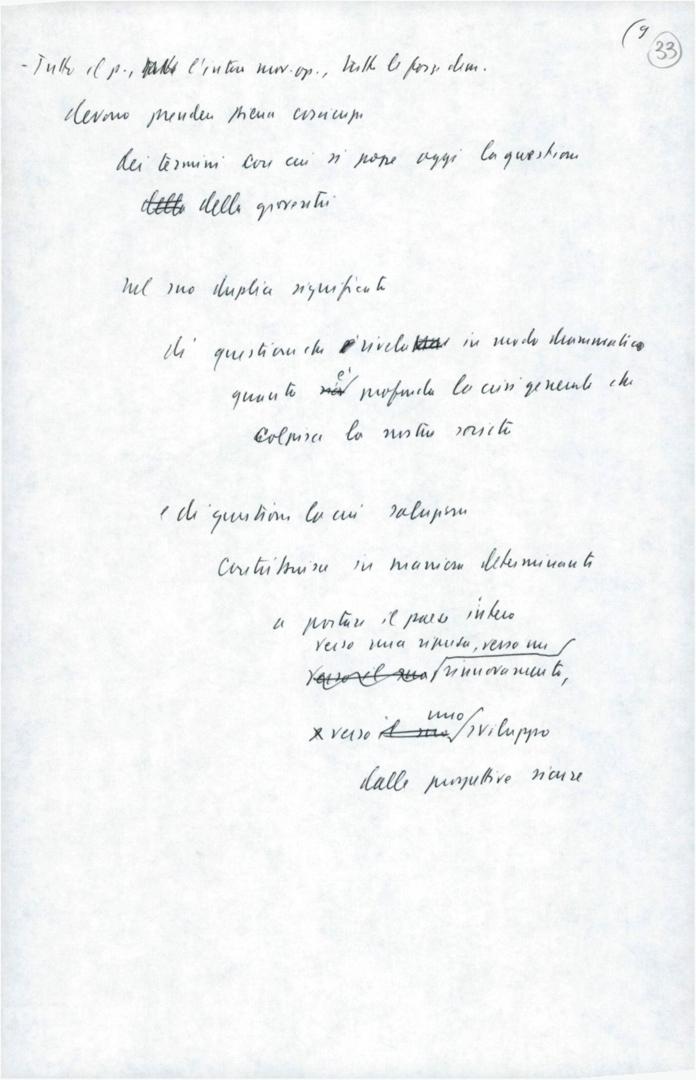 (9
33
- Tutto il p., tutto l'intero mov. op., tutte le forze dem.
devono prendere piena coscienza
dei termini con cui si pone oggi la questione
della della gioventù
nel suo duplice significato
di questione che rivela in modo drammatico
quanto sia è profonda la crisi generale che
colpisce la nostra società
e di questione la cui soluzione
contribuisce in maniera determinante
a portare il paese intero
verso una ripresa, verso un
verso il suo rinnovamento,
uno
verso il suo sviluppo
dalle prospettive sicure